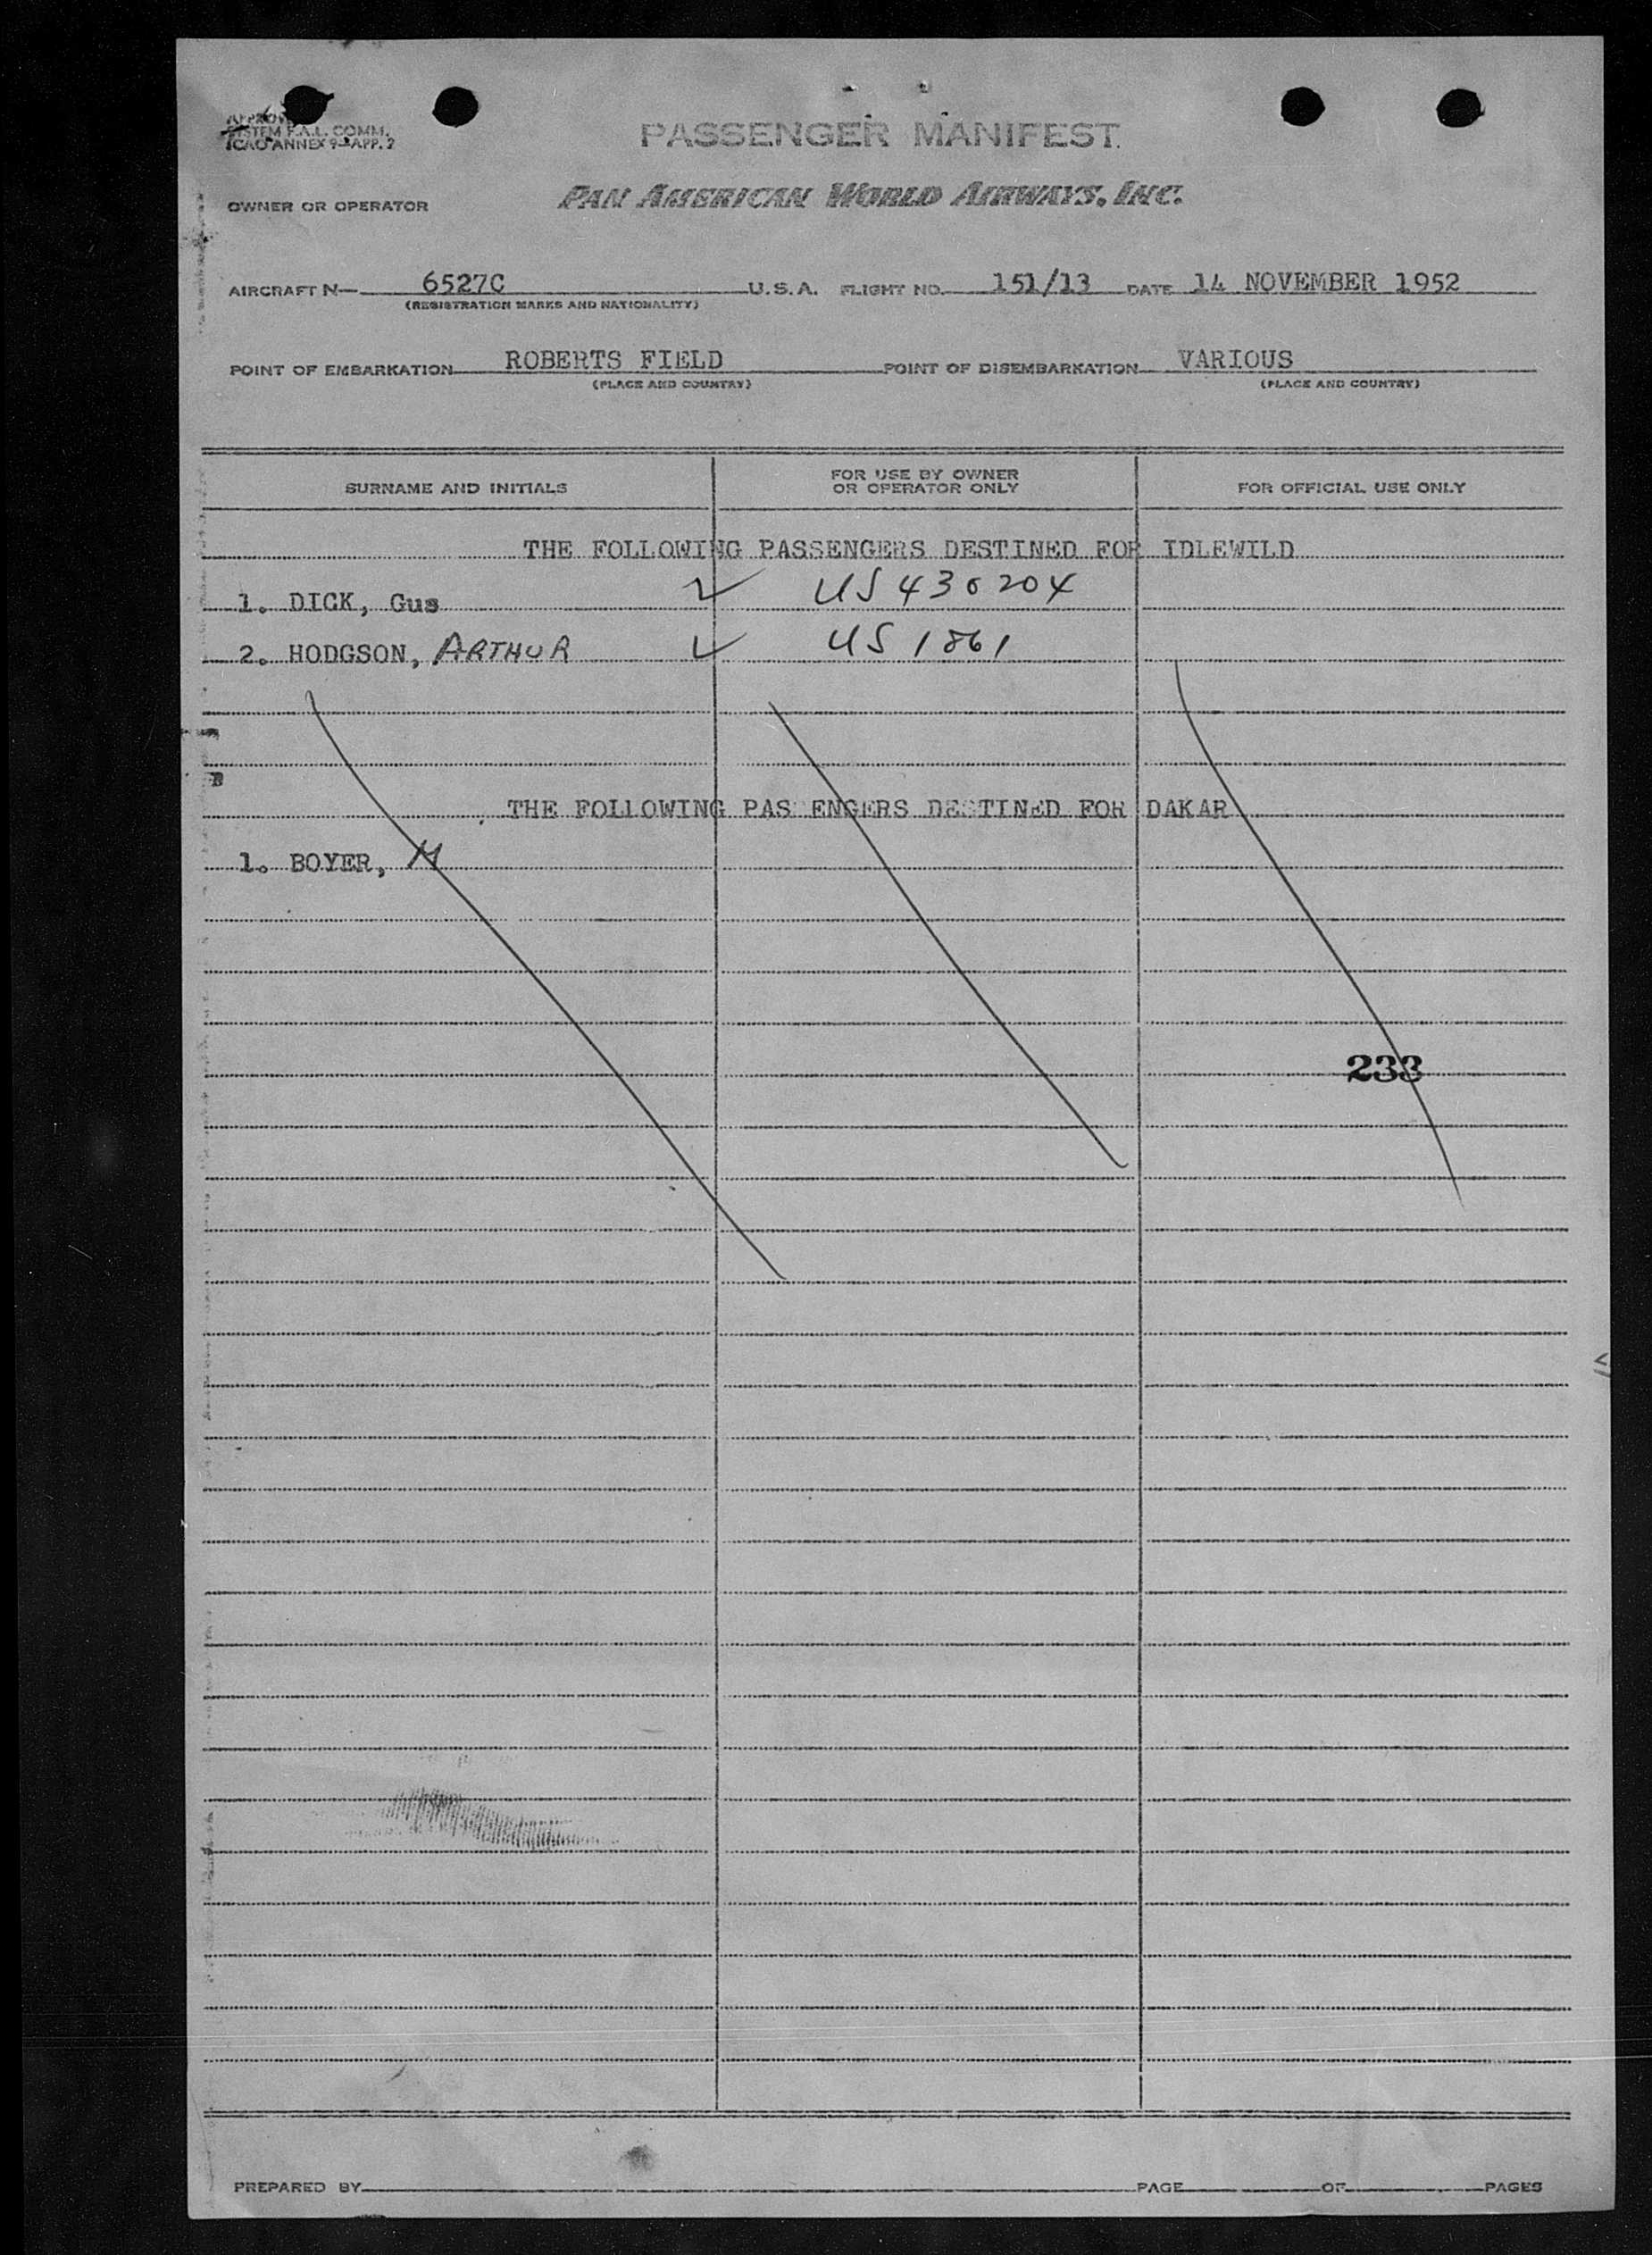 SYSTEM F.A.L. COMM.
ICAO ANNEX 9-APP. 2
PASSENGER MANIFEST
OWNER OR OPERATOR PAN AMERICAN WORLD AIRWAYS, INC.
AIRCRAFT N— 6527C U.S.A. FLIGHT NO. 151/13 DATE 14 NOVEMBER 1952
(REGISTRATION MARKS AND NATIONALITY)
POINT OF EMBARKATION ROBERTS FIELD POINT OF DISEMBARKATION VARIOUS
(PLACE AND COUNTRY) (PLACE AND COUNTRY)
SURNAME AND INITIALS FOR USE BY OWNER OR OPERATOR ONLY FOR OFFICIAL USE ONLY
THE FOLLOWING PASSENGERS DESTINED FOR IDLEWILD
1. DICK, Gus US 430204
2. HODGSON, ARTHUR US 1861
THE FOLLOWING PAS ENGERS DESTINED FOR DAKAR
1. BOYER, M
233
PREPARED BY PAGE OF PAGES